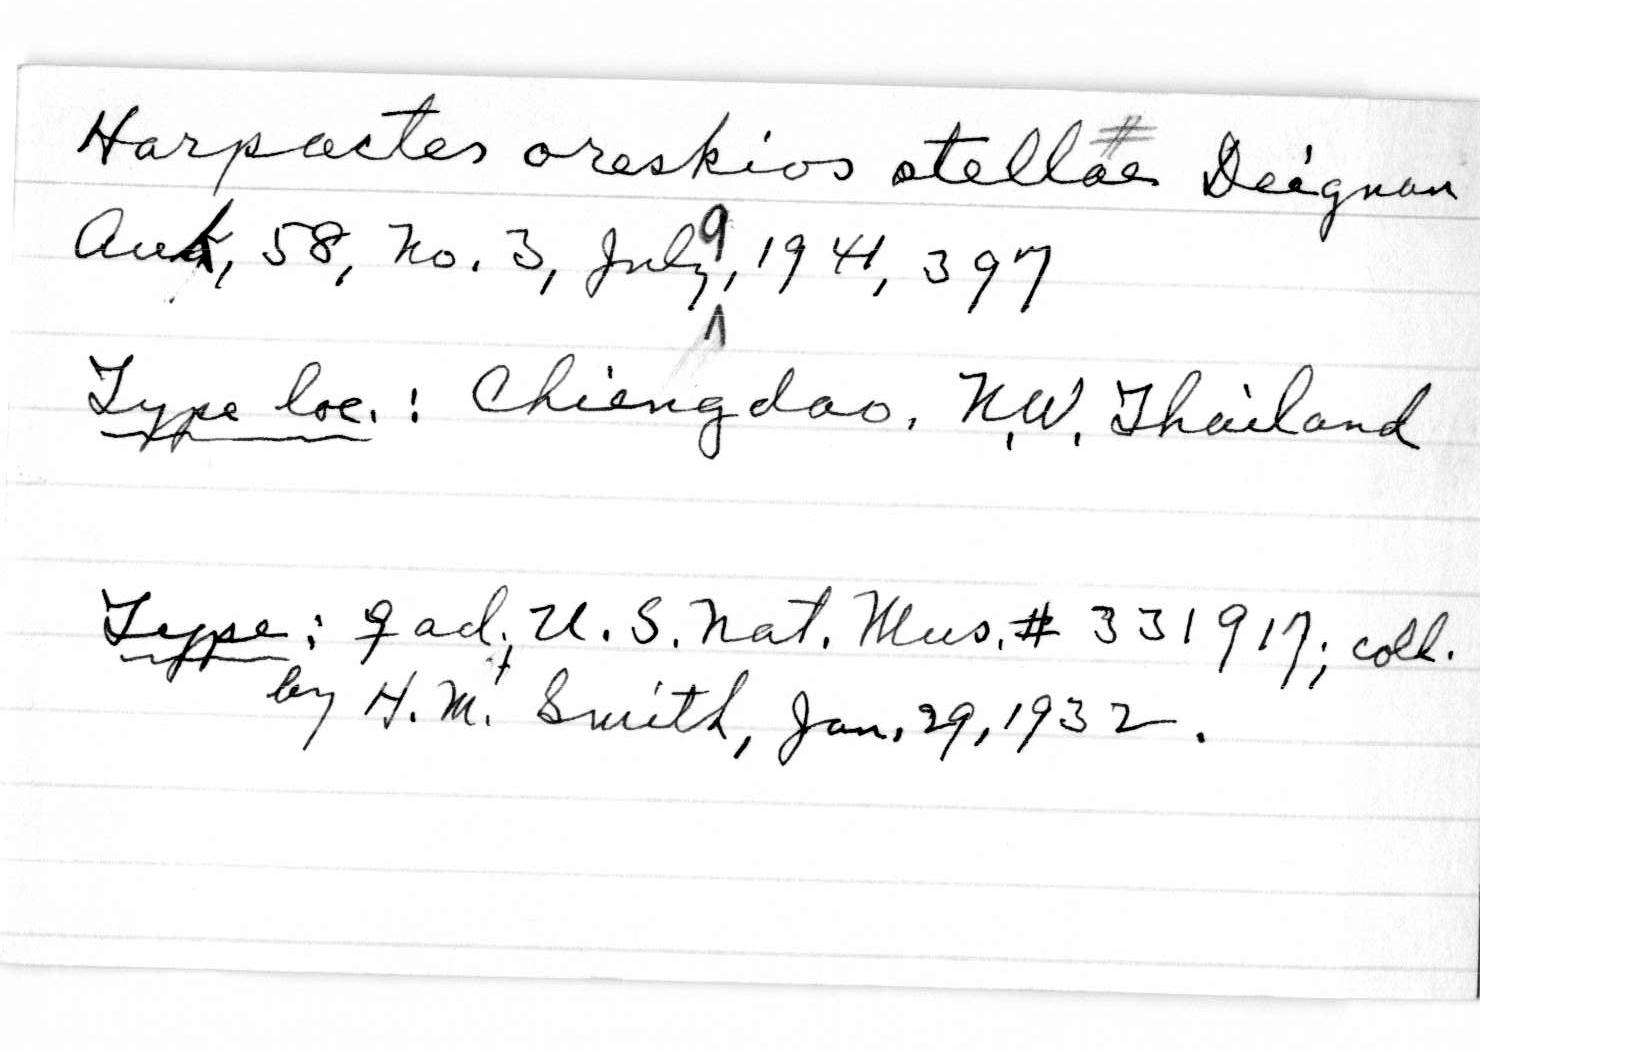 Harpactes oreskios stellae # Deignan
Auk, 58, No. 3, July 9, 1941, 397
Type loc.: Chiengdao, N.W. Thailand
Type: ♀ ad., U.S. Nat. Mus. # 331917; coll.
by H.M. Smith, Jan. 29, 1932.